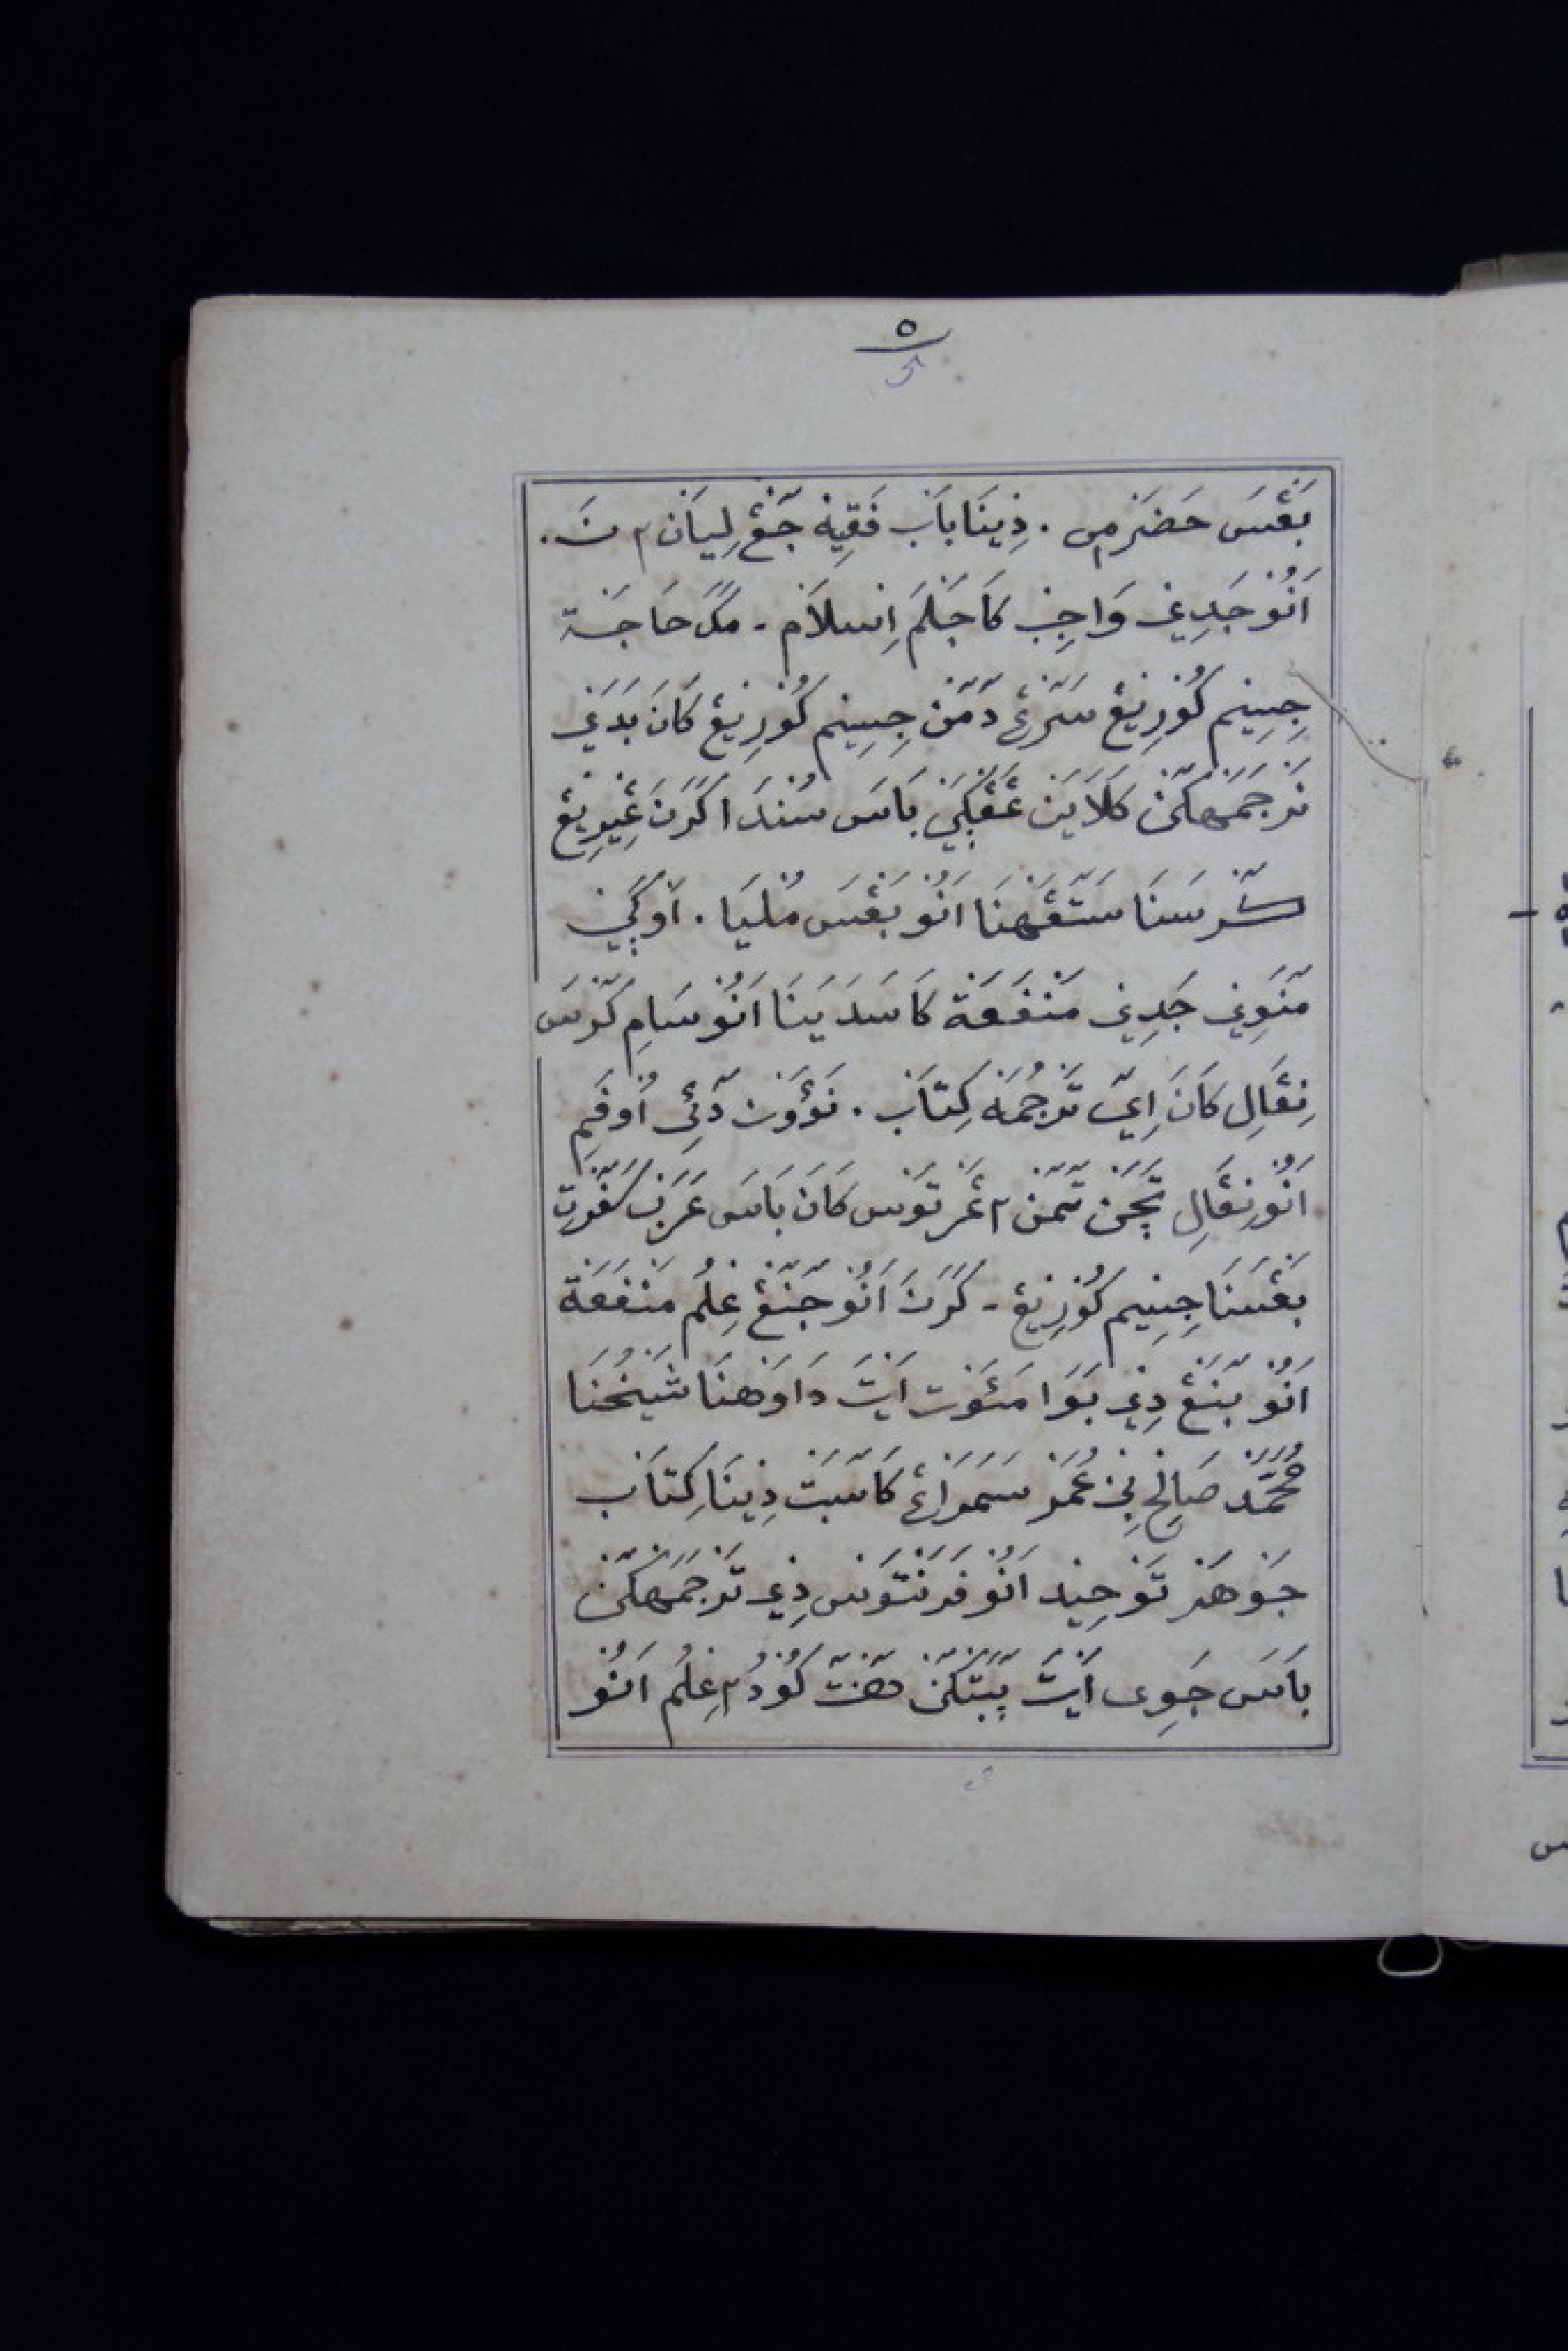 ٥
5
بَڠْسَ حَضَرْمِي . دِيْنَا بَابْ فَقِيْهْ جَڠْ لِيَانْ٢ نَ .
اَنُوْ جَدِيْ وَاجِبْ كَا جَلْمَ اِسْلَامْ - مَكَ حَاجَةْ
جِسِيْمْ كُوْرِيْڠْ سَرْڠْ دَمَنْ جِسِيْمْ كُوْرِيْڠْ كَانَ بَدَيْ
تَرْجَمَهْكَنْ كَلَايَنْ عَڠْڮَيْ بَاسَ سُنْدَا كَرَنَ غِيْرِيْڠْ
كَرْسَنَا سَتَڠَهْنَا اَنُوْ بَڠْسَ مُلْيَا . اَوْڮَيْ
مَنَوِيْ جَدِيْ مَنْفَعَةْ كَا سَدَيَنَا اَنُوْ سَامِ كَرْسَ
نِڠَالِ كَانَ اِيْ تَرْجُمَةْ كِتَابْ . نَؤُوْنْ دَئِيْ اُوْفَمِ
اَنُوْ نِڠَالِ تَچَنْ تَمَنْ٢ غَرْتَوْسْ كَانَ بَاسَ عَرَبْ سَفَرْتِ
بَڠْسَنَا جِسِيْمْ كُوْرِيْڠْ - كَرَنَ اَنُوْ جَنَڠْ عِلْمُ مَنْفَعَةْ
اَنُوْ بَنَڠْ دِيْ بَوَا مَئَوْتْ اَيْتَ دَاوَهْنَا شَيْخُنَا
مُحَمَّدْ صَالِحْ بِنْ عُمَرْ سَمَرَاڠْ كَا سَبَتْ دِيْنَا كِتَابْ
جَوْهَرْ تَوْحِيْدْ اَنُوْ فَرَنْتَوْسْ دِيْ تَرْجَمَهْكَنْ
بَاسَ جَوِى اَيْتَ ڮَبَتْكَنْ هَنْتَ كُوْدُ٢ عِلْمُ اَنُوْ